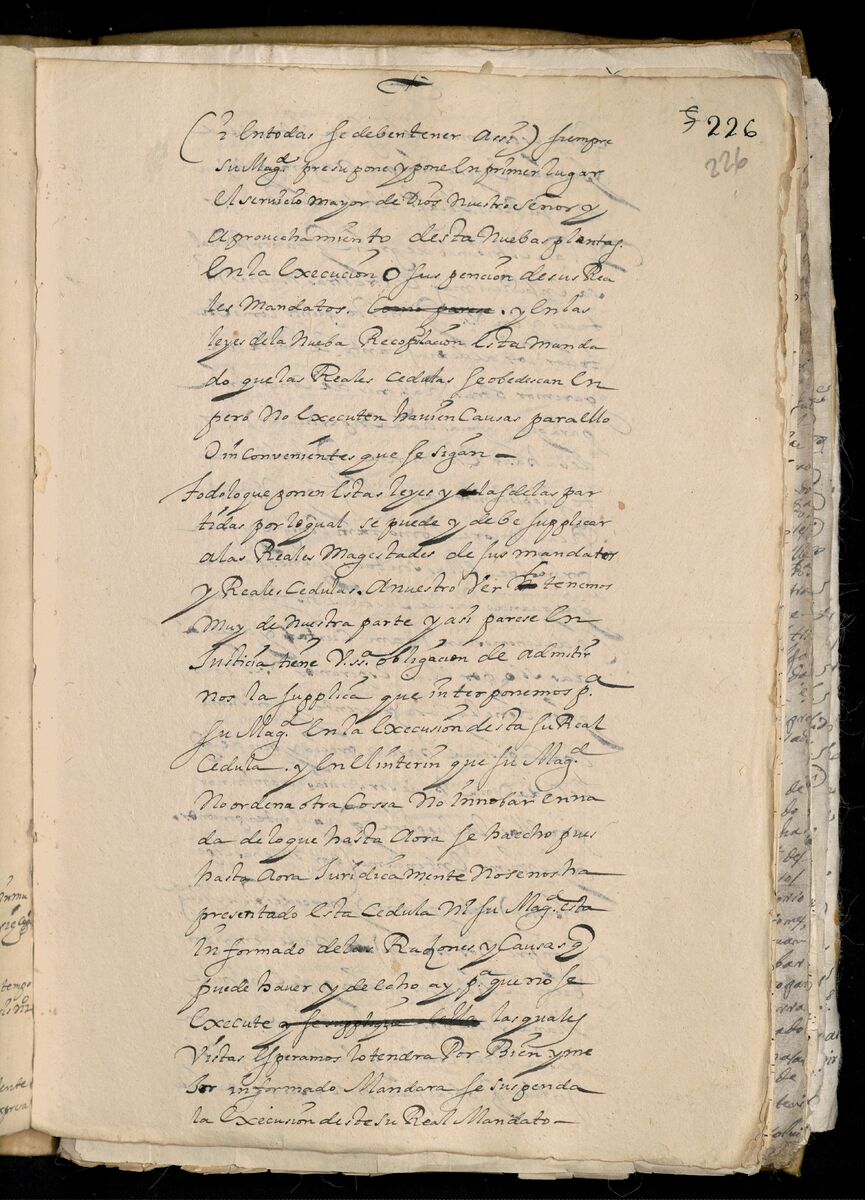 226
226
(i En todas se deben tener Assi) siempre
su Magd. presupone y pone En primer lugar
el seruicio mayor de Dios Nuestro Señor y
aprovechamiento desta Nuebas plantas
En la Execucion O suspencion de sus Rea
les Mandatos. Como parese . y En las
leyes de la Nueba Recopilacion Esta manda
do que las Reales Cedulas se obedescan En
pero No Executen havien Causas para Ello
O inConvenientes que se sigan —
todo lo que ponen Estas leyes y delas par
tidas por lo qual se puede y debe supplicar
a las Reales Magestades de sus mandatos
y Reales Cedulas. A nuestro Ver tenemos
Muy de Nuestra parte y asi parese En
Justicia tiene V.ssa. obligacion de admitir
nos la supplica que interponemos pa.
su Magd. En la Execusion desta su Real
Cedula . y En El interin que su Magd.
No ordena otra Cossa No Innobar En na
da de lo que hasta Aora se ha echo pues
hasta Aora Juridicamente No se nos ha
presentado Esta Cedula Ni su Magd. esta
Informado de las Razones y Causas q
puede haver y de echo ay pa. que no se
Execute y se supplique della las quales
Vistas Esperamos lo tendra Por Bien y me
Jor informado Mandara se suspenda
la Execusion deste su Real Mandato —